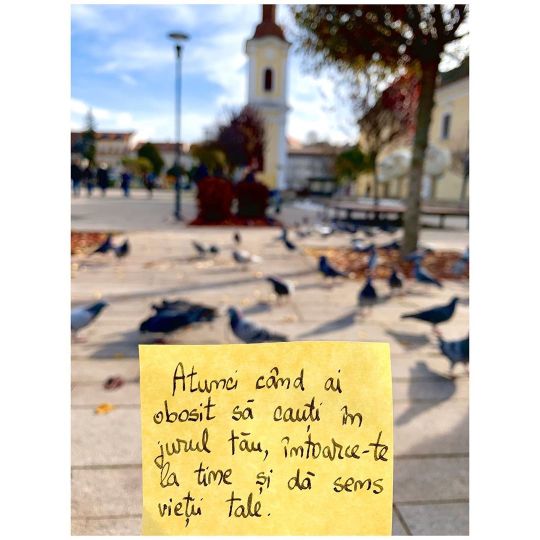 Atunci când ai
obosit să cauți în
jurul tău, întoarce-te
la tine și dă sens
vieții tale.